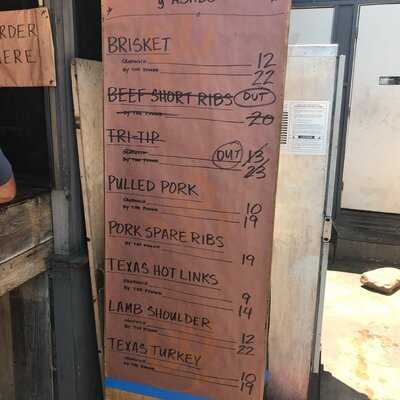 ORDER
HERE
BRISKET
SANDWICH 12
BY THE POUND 22
BEEF SHORT RIBS OUT
BY THE POUND 20
TRI-TIP
SANDWICH OUT 13
BY THE POUND 23
PULLED PORK
SANDWICH 10
BY THE POUND 19
PORK SPARE RIBS
BY THE POUND 19
TEXAS HOT LINKS
SANDWICH 9
BY THE POUND 14
LAMB SHOULDER
SANDWICH 12
BY THE POUND 22
TEXAS TURKEY
SANDWICH 10
BY THE POUND 19